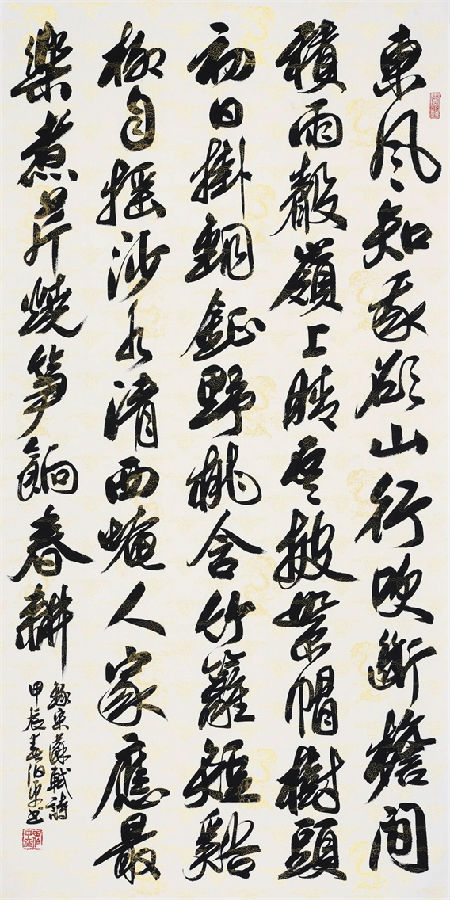 東風知我欲山行吹斷檐間
積雨聲嶺上晴雲披絮帽樹頭
初日掛銅鉦野桃含竹籬短谿
柳自摇沙水清西崦人家應最
樂煮芹燒笋餉春耕
錄宋蘇軾詩
甲辰春書